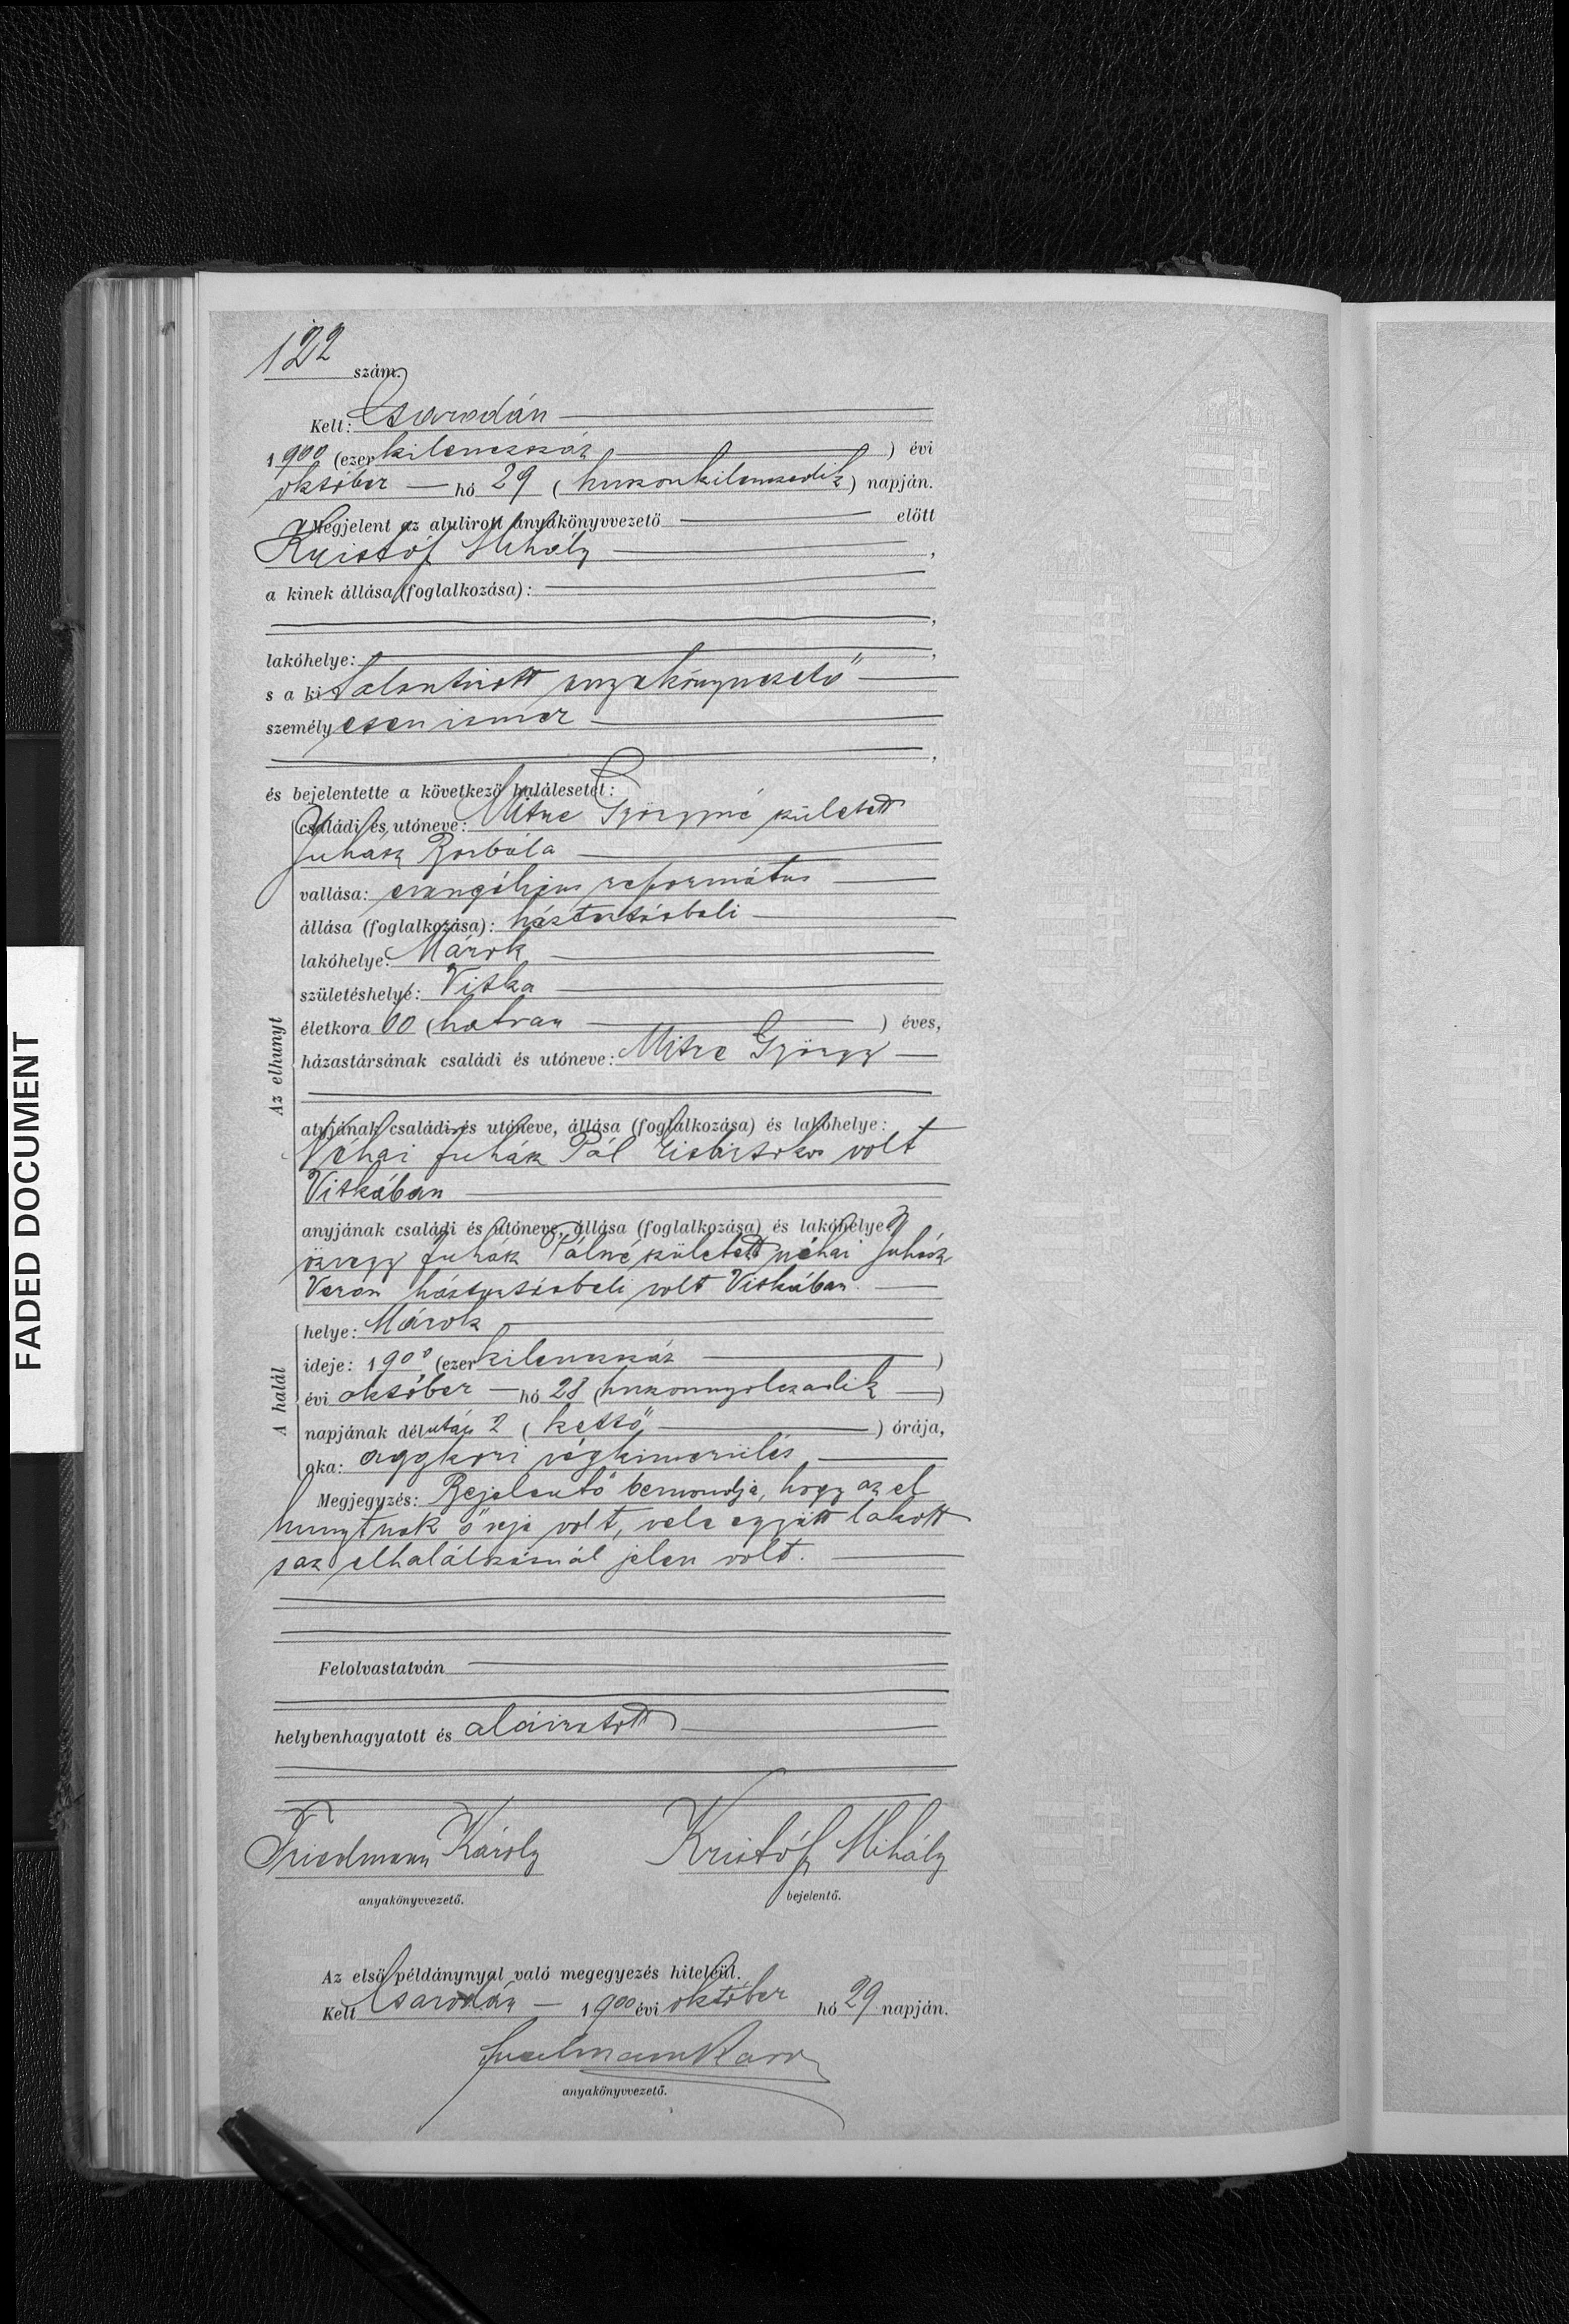 122 szám.
Kelt: Csarodán
1900 (ezer kilenczszáz) évi
október hó 29 (huszonkilenczedik) napján.
Megjelent az alulirott anyakönyvvezető előtt
Kristóf Mihály,
a kinek állása (foglalkozása):
,
lakóhelye: ,
s a kit alantirott anyakönyvvezető
személyesen ismer
,
és bejelentette a következő halálesetet:
Az elhunyt
családi és utóneve: Mitre Györgyné született
Juhász Borbála
vallása: evangélijus református
állása (foglalkozása): háztartásbeli
lakóhelye: Márok
születéshelye: Vitka
életkora 60 (hatvan) éves,
házastársának családi és utóneve: Mitre György
atyjának családi és utóneve, állása (foglalkozása) és lakóhelye:
Néhai Juhász Pál kisbirtokos volt
Vitkában
anyjának családi és utóneve, állása (foglalkozása) és lakóhelye:
özvegy Juhász Pálné született néhai Juhász
Veron háztartásbeli volt Vitkában.
A halál
helye: Márok
ideje: 1900 (ezer kilenczszáz)
évi október hó 28 (huszonnyolczadik)
napjának délután 2 (kettő) órája,
oka: aggkori végkimerülés
Megjegyzés: Bejelentő bemondja, hogy az el
hunytnak veje volt, vele együtt lakott
s az elhalálozásnál jelen volt.
Felolvastatván
helybenhagyatott és aláiratott
Friedmann Károly Kristóf Mihály
anyakönyvvezető. bejelentő.
Az első példánynyal való megegyezés hiteléül.
Kelt Csarodán 1900 évi október hó 29 napján.
Friedmann Károly
anyakönyvvezető.
FADED DOCUMENT